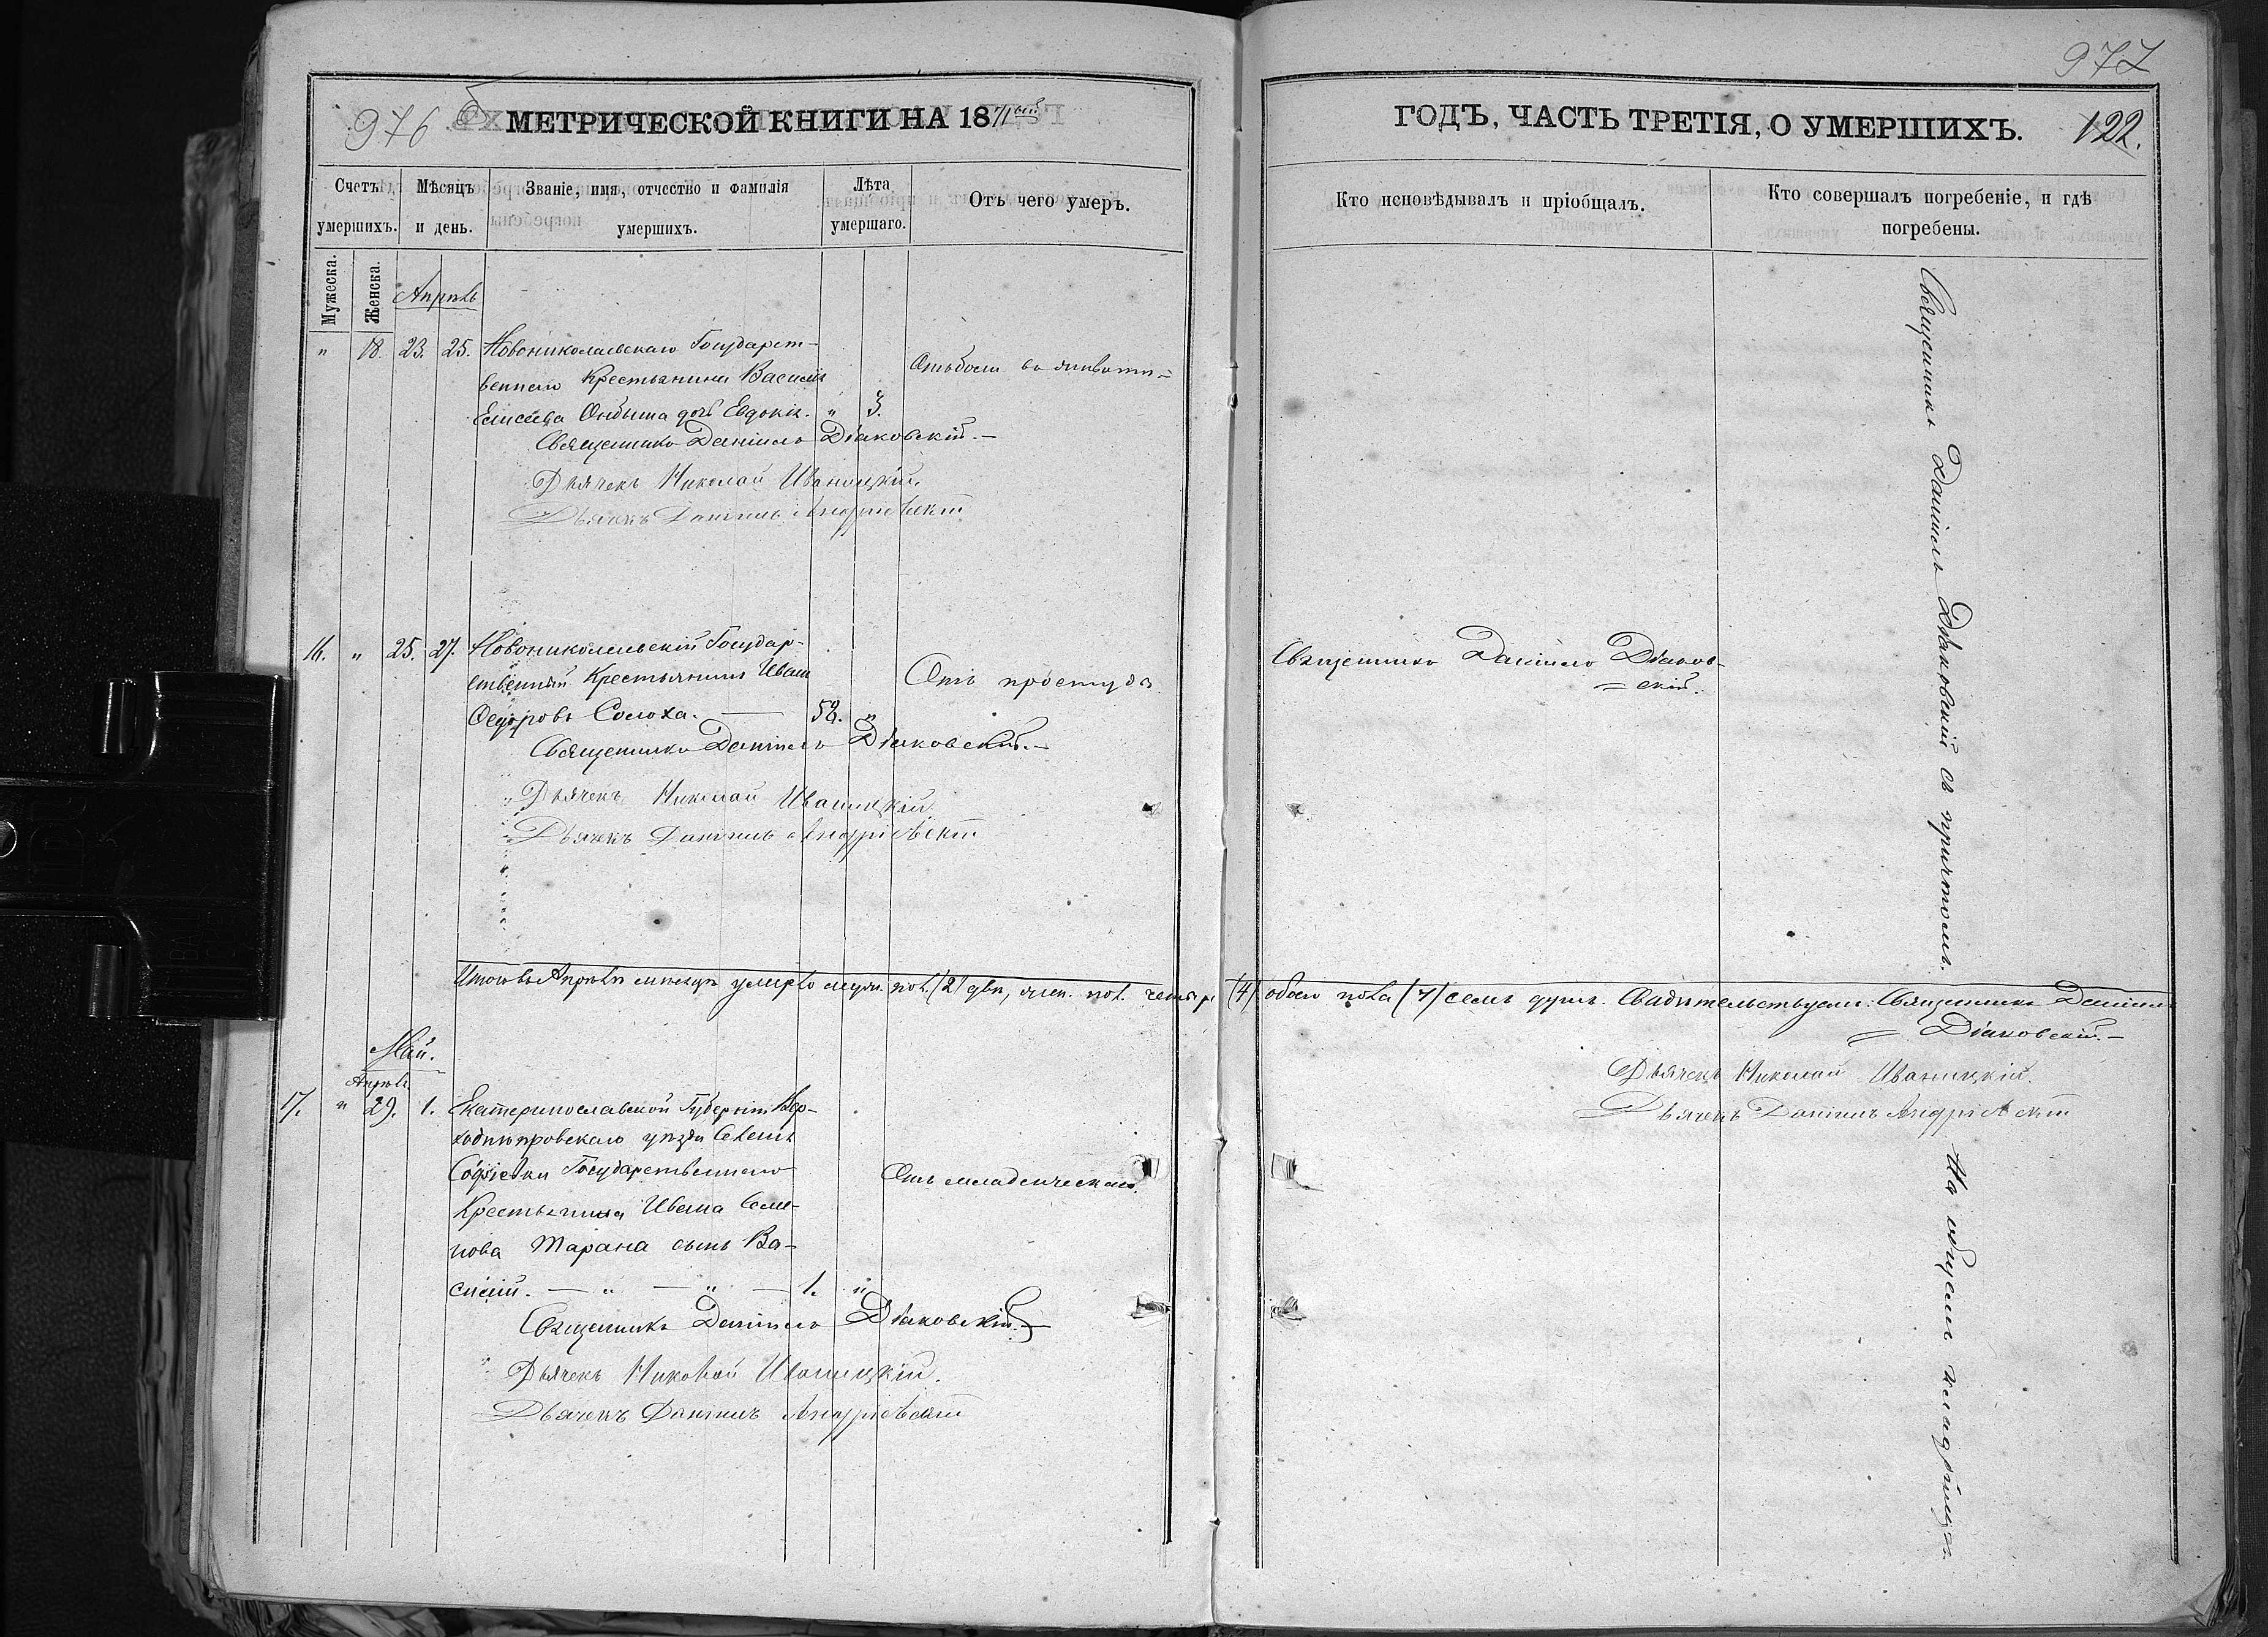 976
МЕТРИЧЕСКОЙ КНИГИ НА 1871ый
Счетъ умершихъ.
Мѣсяцъ и день.
Званіе, имя, отчество и фамилія умершихъ.
Лѣта умершаго.
Отъ чего умеръ.
Мужеска.
Женска.
Апрѣль
" 18. 23. 25. Новониколаевскаго Государст-
веннаго Крестьянина Василія
Елисѣева дочь Евдокія. " 3.
Священникъ Даніилъ Діаковскій.-
Дьячекъ Николай Иваницкій.
Дьячекъ Даніилъ Андріевскій
16. " 25. 27. Новониколаевскій Государ-
ственный Крестьянинъ Иванъ
Ѳедоровъ Солоха. — 52. "
Отъ простуды
Священникъ Даніилъ Діаковскій.-
Дьячекъ Николай Иваницкій.
Дьячекъ Даніилъ Андріевскій
Итого въ Апрѣлѣ мѣсяцѣ умерло муж. пол. (2) два, жен. пол. четыре (4)
Май.
Апрѣль
17. " 29. 1. Екатеринославской Губерніи Вер-
ходнѣпровскаго уѣзда Селенія
Софіевки Государственнаго
Крестьянина Ивана Семе-
нова Тарана сынъ Ва-
силій. — " — " — 1. "
Отъ младенческой
Священникъ Даніилъ Діаковскій.-
Дьячекъ Николай Иваницкій.
Дьячекъ Даніилъ Андріевскій
977
ГОДЪ, ЧАСТЬ ТРЕТІЯ, О УМЕРШИХЪ.
122.
Кто исповѣдывалъ и пріобщалъ.
Кто совершалъ погребеніе, и гдѣ погребены.
Священникъ Даніилъ Діаков-
=скій.
Священникъ Даніилъ Діаковскій съ причтомъ.
обоего пола (7) семь душъ. Свидѣтельствуемъ: Священникъ Даніилъ
= Діаковскій.-
Дьячекъ Николай Иваницкій.
Дьячекъ Даніилъ Андріевскій
На общемъ кладбищѣ.